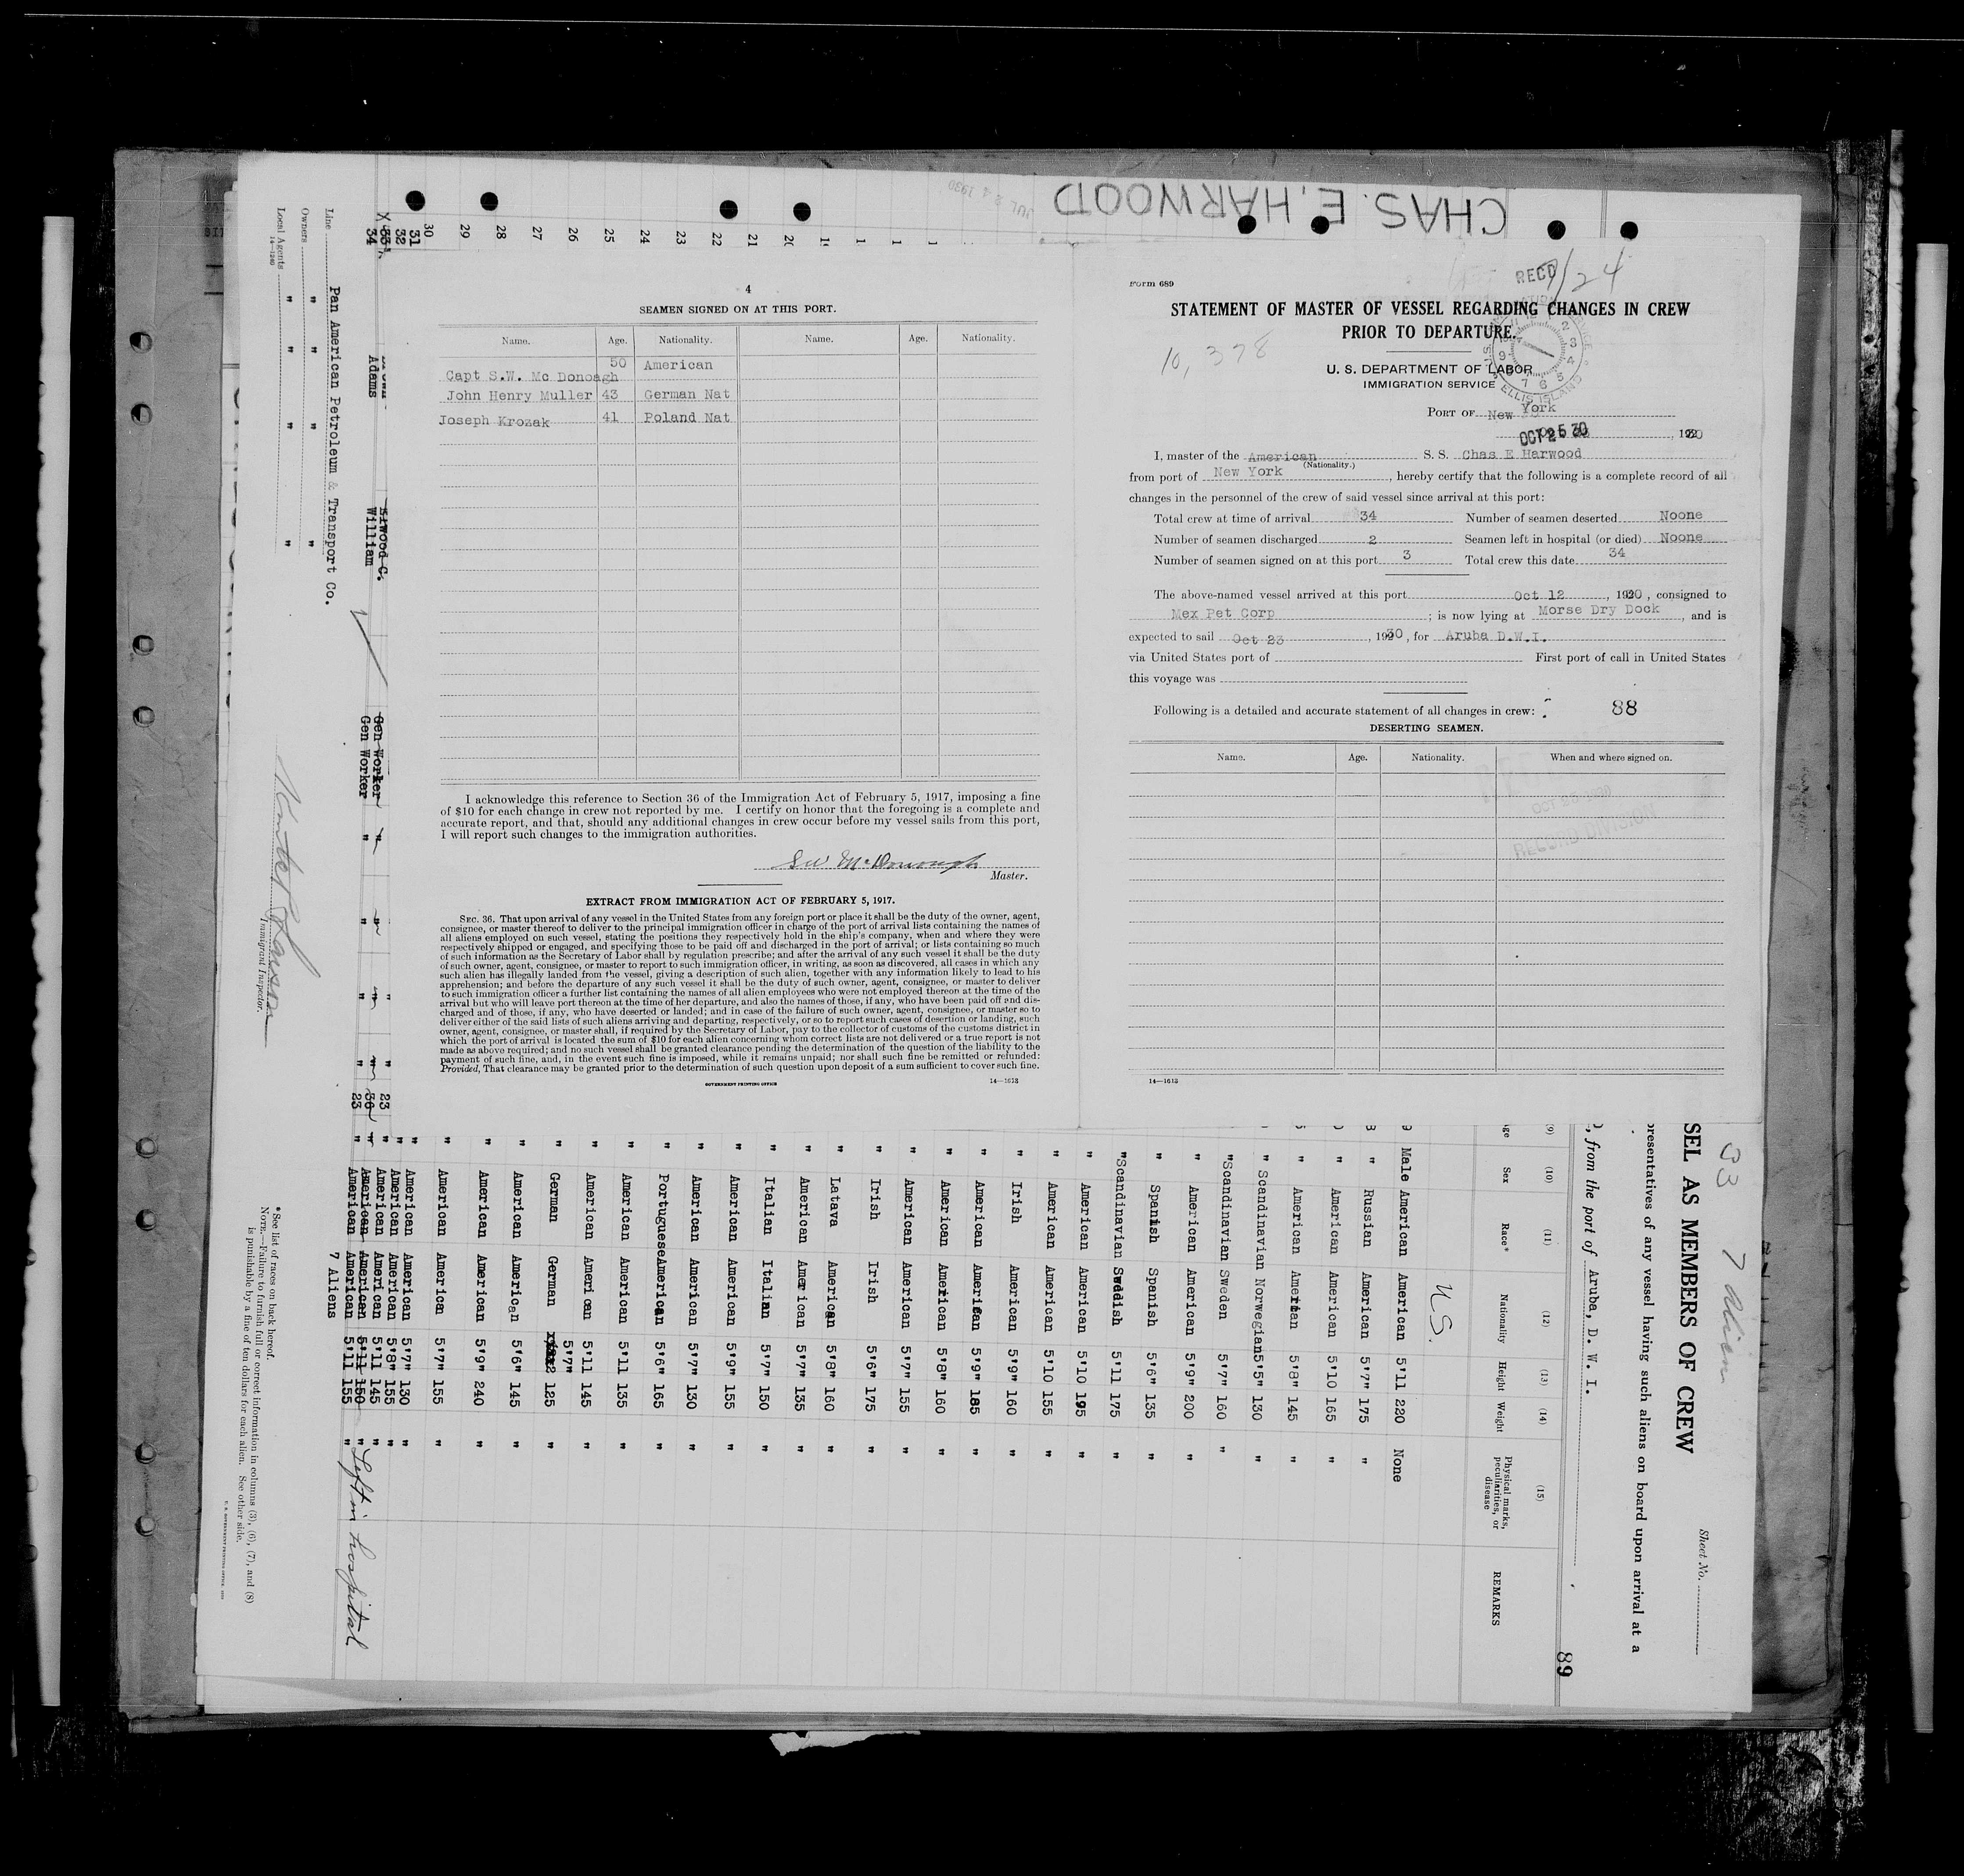 CHAS. E. HARWOOD
JUL 24 1930
4
SEAMEN SIGNED ON AT THIS PORT.
Name. Age. Nationality. Name. Age. Nationality.
Capt S.W. Mc Donoagh 50 American
John Henry Muller 43 German Nat
Joseph Krozak 41 Poland Nat
I acknowledge this reference to Section 36 of the Immigration Act of February 5, 1917, imposing a fine
of $10 for each change in crew not reported by me. I certify on honor that the foregoing is a complete and
accurate report, and that, should any additional changes in crew occur before my vessel sails from this port,
I will report such changes to the immigration authorities.
SW McDonough
Master.
EXTRACT FROM IMMIGRATION ACT OF FEBRUARY 5, 1917.
SEC. 36. That upon arrival of any vessel in the United States from any foreign port or place it shall be the duty of the owner, agent,
consignee, or master thereof to deliver to the principal immigration officer in charge of the port of arrival lists containing the names of
all aliens employed on such vessel, stating the positions they respectively hold in the ship's company, when and where they were
respectively shipped or engaged, and specifying those to be paid off and discharged in the port of arrival; or lists containing so much
of such information as the Secretary of Labor shall by regulation prescribe; and after the arrival of any such vessel it shall be the duty
of such owner, agent, consignee, or master to report to such immigration officer, in writing, as soon as discovered, all cases in which any
such alien has illegally landed from the vessel, giving a description of such alien, together with any information likely to lead to his
apprehension; and before the departure of any such vessel it shall be the duty of such owner, agent, consignee, or master to deliver
to such immigration officer a further list containing the names of all alien employees who were not employed thereon at the time of the
arrival but who will leave port thereon at the time of her departure, and also the names of those, if any, who have been paid off and dis-
charged and of those, if any, who have deserted or landed; and in case of the failure of such owner, agent, consignee, or master so to
deliver either of the said lists of such aliens arriving and departing, respectively, or so to report such cases of desertion or landing, such
owner, agent, consignee, or master shall, if required by the Secretary of Labor, pay to the collector of customs of the customs district in
which the port of arrival is located the sum of $10 for each alien concerning whom correct lists are not delivered or a true report is not
made as above required; and no such vessel shall be granted clearance pending the determination of the question of the liability to the
payment of such fine, and, in the event such fine is imposed, while it remains unpaid; nor shall such fine be remitted or refunded:
Provided, That clearance may be granted prior to the determination of such question upon deposit of a sum sufficient to cover such fine.
GOVERNMENT PRINTING OFFICE 14—1613
Form 689
RECD
STATEMENT OF MASTER OF VESSEL REGARDING CHANGES IN CREW
PRIOR TO DEPARTURE.
10,378
U. S. DEPARTMENT OF LABOR
IMMIGRATION SERVICE
ELLIS ISLAND
PORT OF New York
OCT 25 30, 1930
I, master of the American S. S. Chas E Harwood
(Nationality.)
from port of New York, hereby certify that the following is a complete record of all
changes in the personnel of the crew of said vessel since arrival at this port:
Total crew at time of arrival 34 Number of seamen deserted Noone
Number of seamen discharged 2 Seamen left in hospital (or died) Noone
Number of seamen signed on at this port 3 Total crew this date 34
The above-named vessel arrived at this port Oct 12, 1930, consigned to
Mex Pet Corp; is now lying at Morse Dry Dock, and is
expected to sail Oct 23, 1930, for Aruba D.W.I.
via United States port of First port of call in United States
this voyage was
Following is a detailed and accurate statement of all changes in crew: 88
DESERTING SEAMEN.
Name. Age. Nationality. When and where signed on.
RECORD DIVISION
14—1613
33 7 Alien
Sheet No.
SEL AS MEMBERS OF CREW
presentatives of any vessel having such aliens on board upon arrival at a
, from the port of Aruba, D. W. I.
89
(9) (10) (11) (12) (13) (14) (15)
ge Sex Race* Nationality Height Weight Physical marks, peculiarities, or disease REMARKS
U.S.
9 Male American American 5'11 220 None
8 " Russian American 5'7" 175 "
0 " American American 5'10 165 "
5 " American American 5'8" 145 "
" Scandinavian Norwegian 5'5" 130 "
" Scandinavian Sweden 5'7" 160 "
" American American 5'9" 200 "
" Spanish Spanish 5'6" 135 "
" Scandinavian Swedish 5'11 175 "
" American American 5'10 195 "
" American American 5'10 155 "
" Irish American 5'9" 160 "
" American American 5'9" 185 "
" American American 5'8" 160 "
" American American 5'7" 155 "
" Irish Irish 5'6" 175 "
" Latava American 5'8" 160 "
" American American 5'7" 135 "
20
" Italian Italian 5'7" 150 "
21
" American American 5'9" 155 "
22
" American American 5'7" 130 "
23
" Portuguese American 5'6" 165 "
24
" American American 5'11 135 "
25
" American American 5'11 145 "
26
" German German 5'7" 125 "
27
" American American 5'6" 145 "
28
" American American 5'9" 240 "
29
" American American 5'7" 155 "
30
" American American 5'7" 130 "
31
" American American 5'8" 155 "
32
23 " American American 5'11 145 "
33 Elwood C. Gen Worker " " " " 36 " American American 5'11 150 "
34 Adams William Gen Worker " " " " 23 " American American 5'11 155 " Left in hospital
7 Aliens
Line Pan American Petroleum & Transport Co.
Owners " " " "
Local Agents " " " "
14—1240
Immigrant Inspector.
*See list of races on back hereof.
NOTE.—Failure to furnish full or correct information in columns (3), (6), (7), and (8)
is punishable by a fine of ten dollars for each alien. See other side.